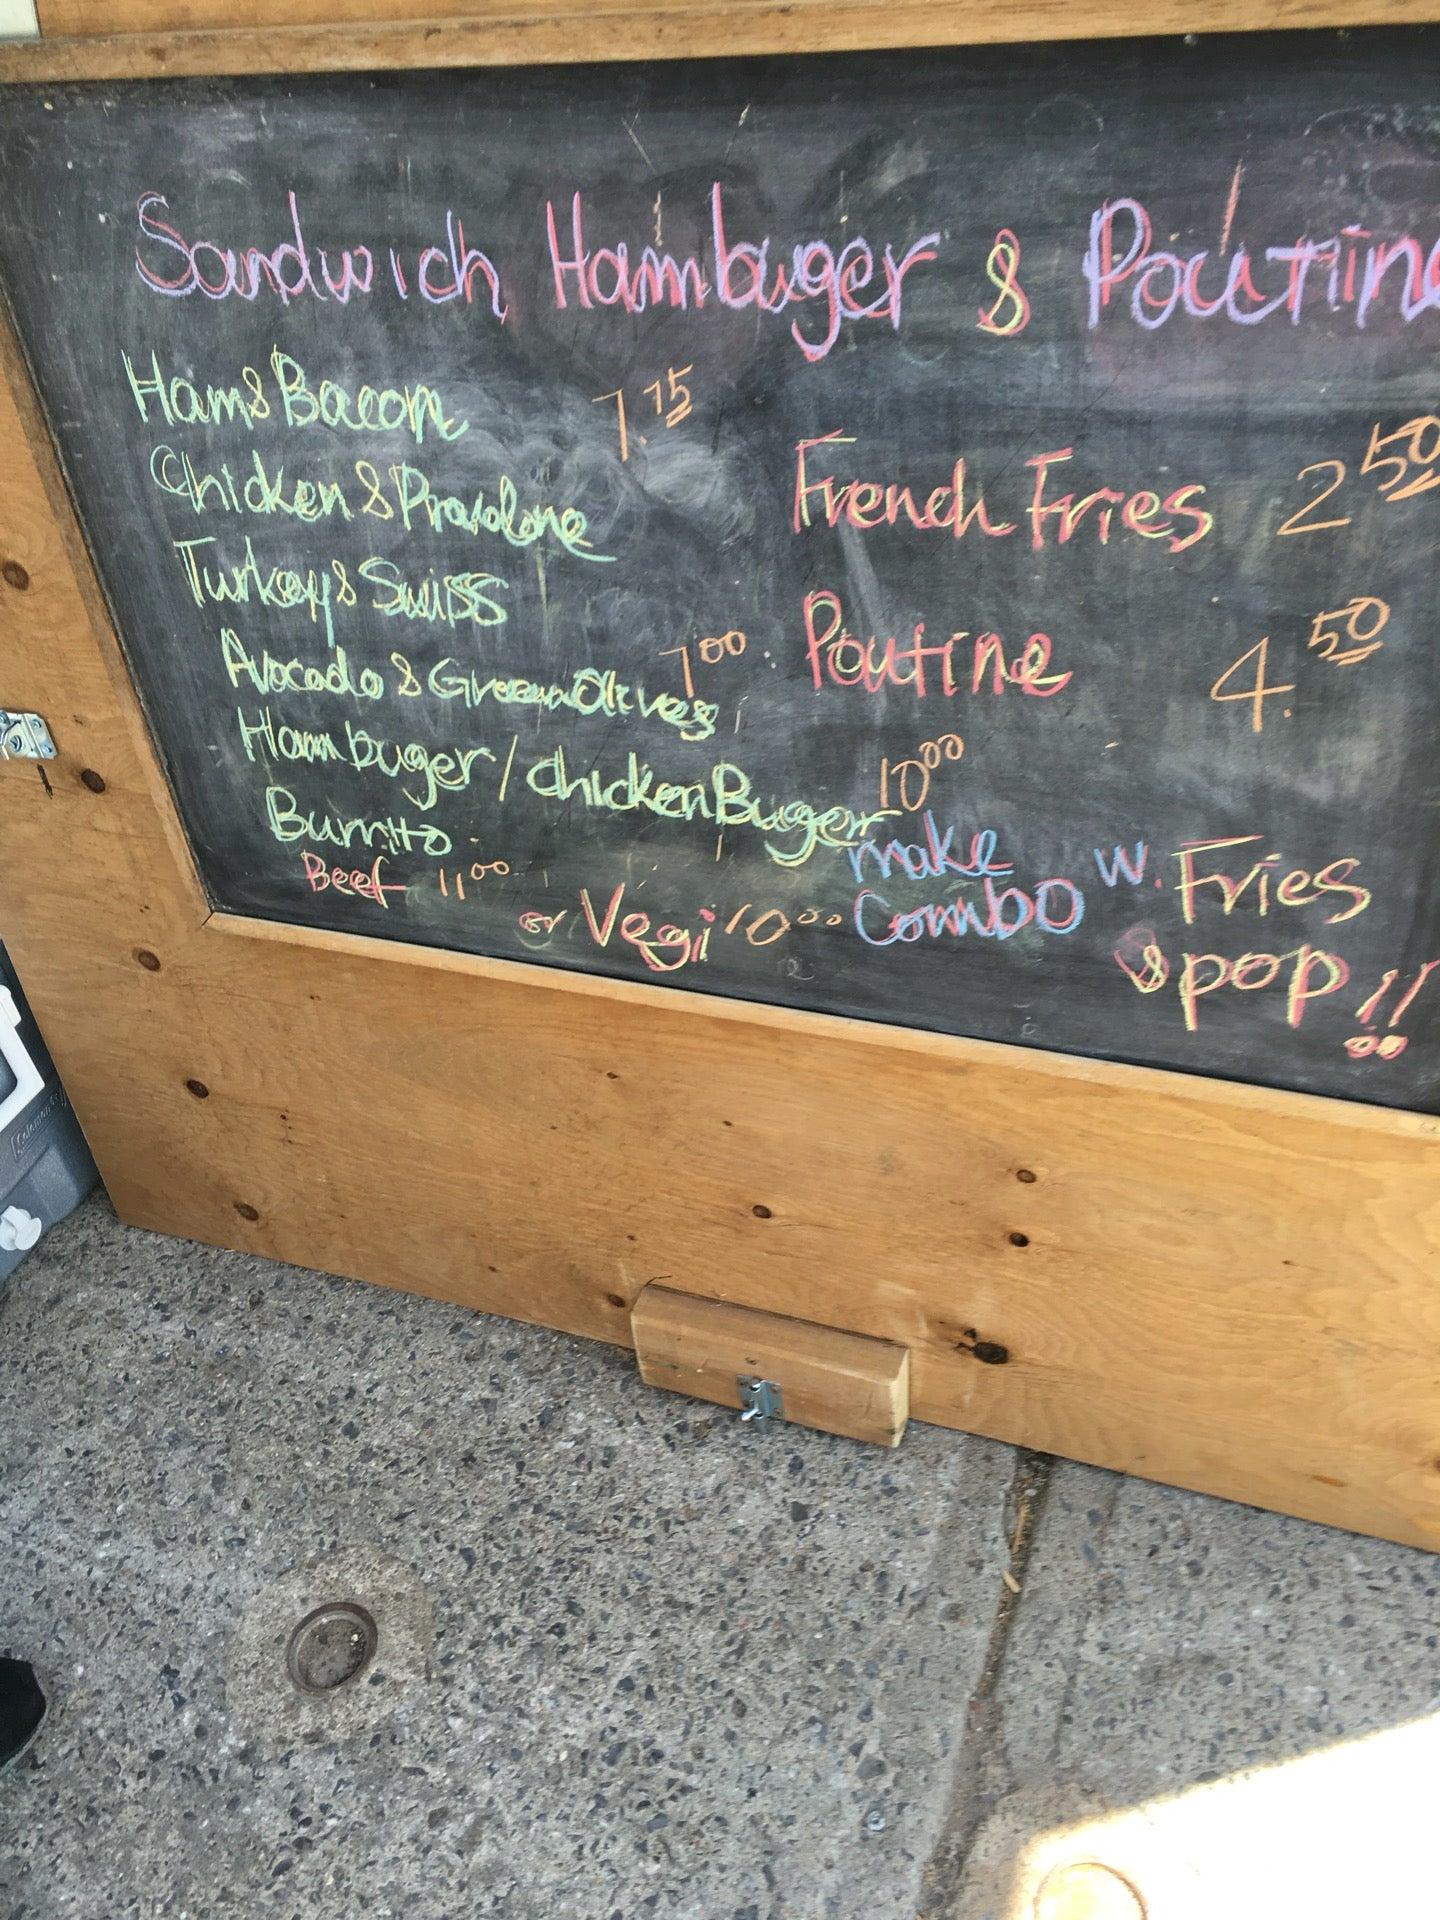 Sandwich Hambuger & Poutine
Ham & Bacon 7.75
Chicken & Provolone
Turkey & Swiss
Avocado & Green Olives 7 00
Hambuger / Chicken Buger 10 00
Burrito
Beef 11 00
or Vegi 10 00
French Fries 2 50
Poutine 4. 50
make Combo w. Fries
& pop !!
Coleman